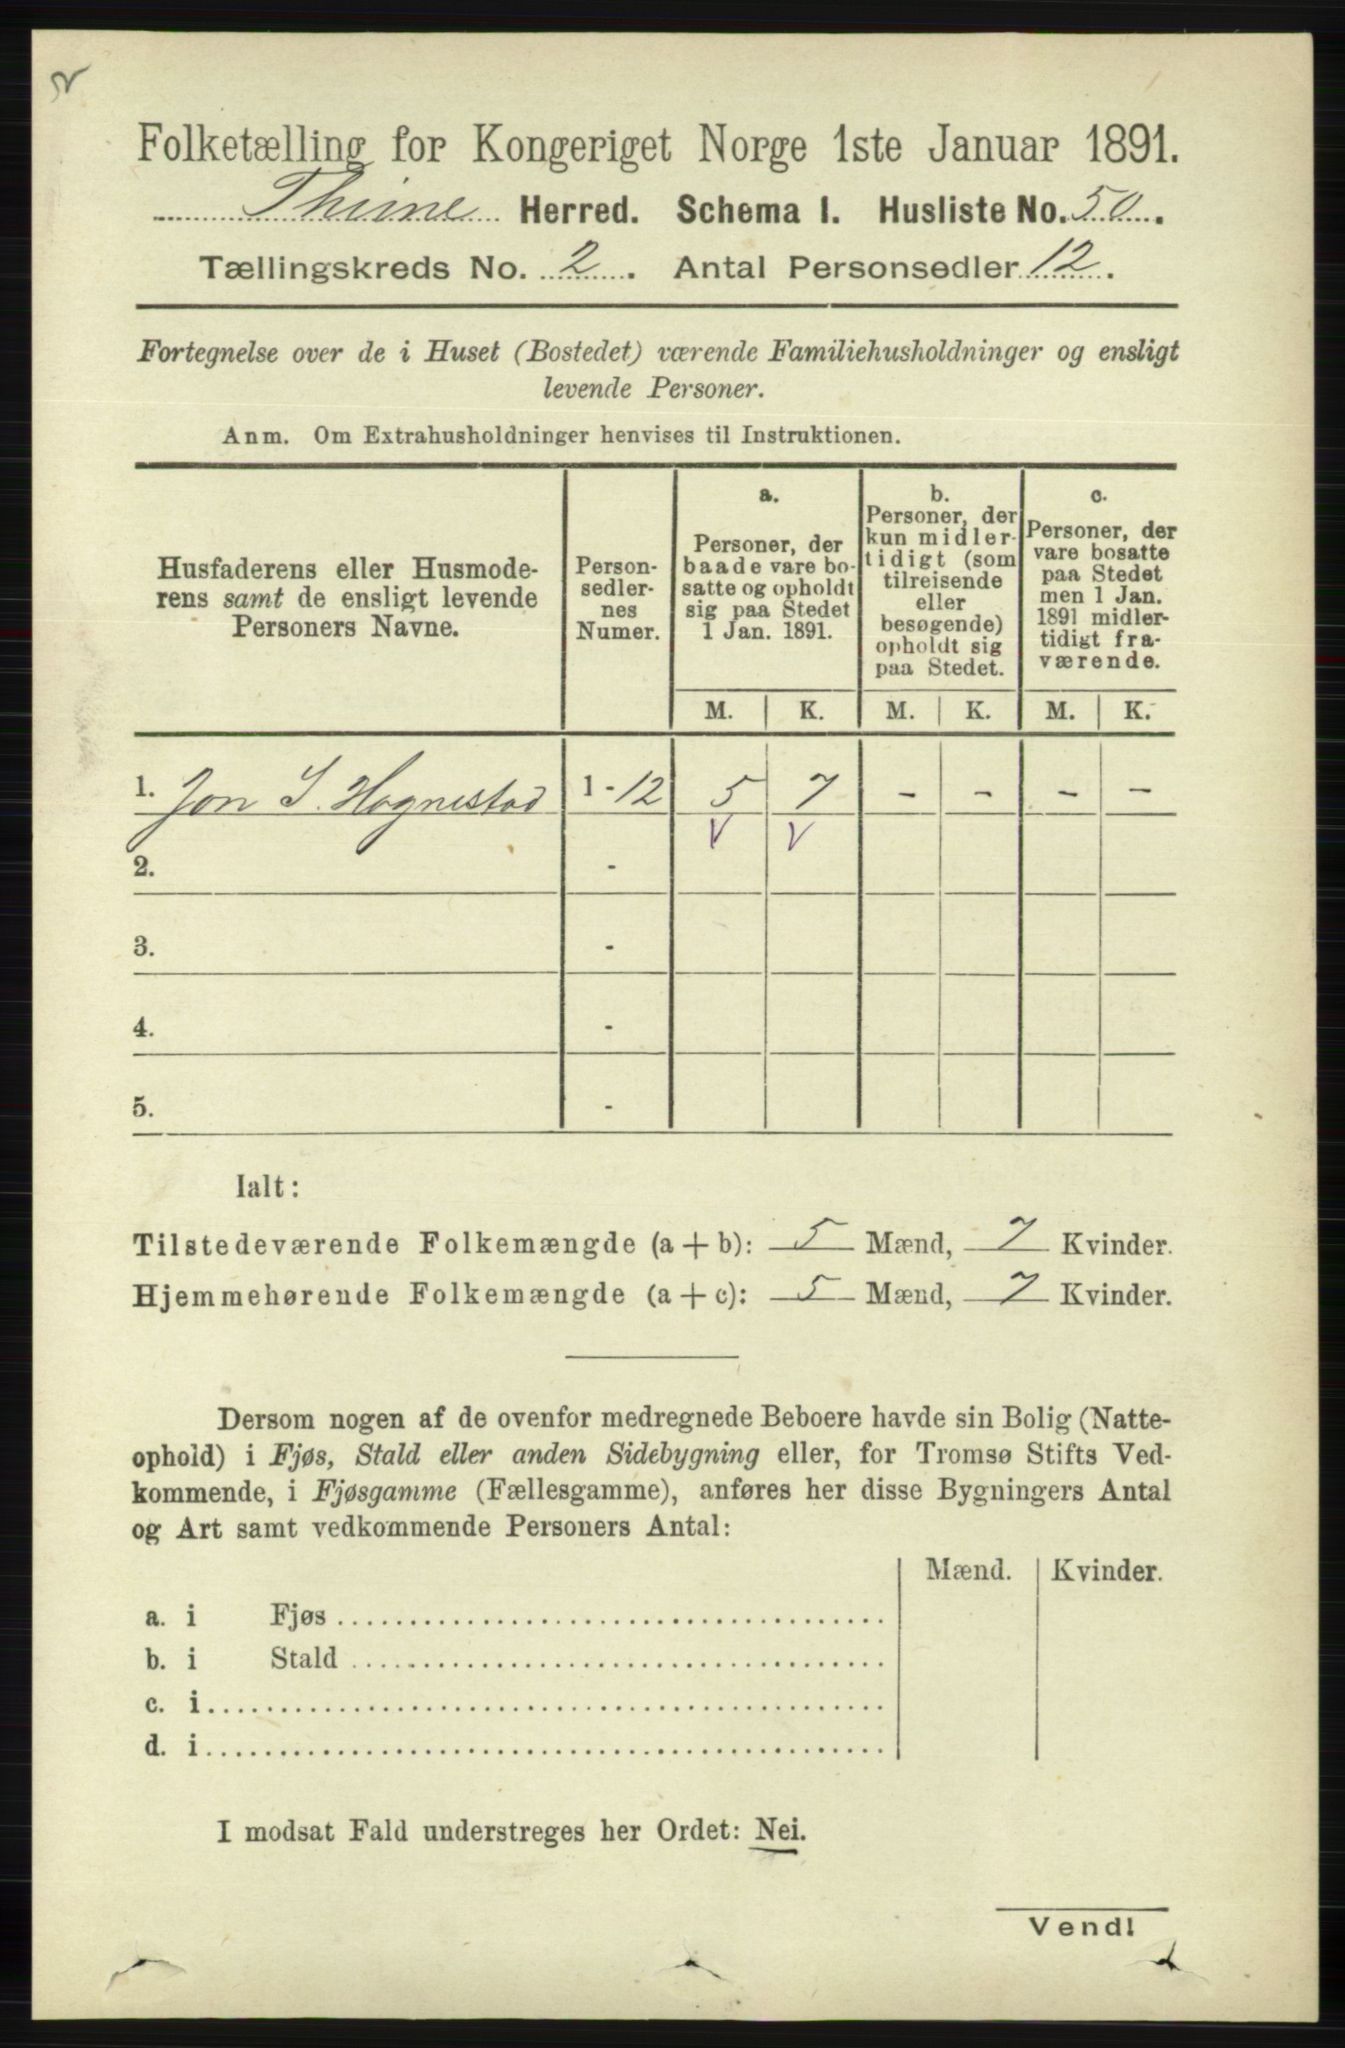 Folketælling for Kongeriget Norge 1ste Januar 1891.
Thime Herred. Schema I. Husliste No. 50.
Tællingskreds No. 2. Antal Personsedler 12.
Fortegnelse over de i Huset (Bostedet) værende Familiehusholdninger og ensligt
levende Personer.
Anm. Om Extrahusholdninger henvises til Instruktionen.
Husfaderens eller Husmode-
rens samt de ensligt levende
Personers Navne.
Person-
sedler-
nes
Numer.
a.
Personer, der
baade vare bo-
satte og opholdt
sig paa Stedet
1 Jan. 1891.
b.
Personer, der
kun midler-
tidigt (som
tilreisende
eller
besøgende)
opholdt sig
paa Stedet.
c.
Personer, der
vare bosatte
paa Stedet
men 1 Jan.
1891 midler-
tidigt fra-
værende.
M. K. M. K. M. K.
1. Jon S. Hognestad 1 - 12 5 7 - - - -
V V
2. -
3. -
4. -
5. -
Ialt:
Tilstedeværende Folkemængde (a + b): 5 Mænd, 7 Kvinder.
Hjemmehørende Folkemængde (a + c): 5 Mænd, 7 Kvinder.
Dersom nogen af de ovenfor medregnede Beboere havde sin Bolig (Natte-
ophold) i Fjøs, Stald eller anden Sidebygning eller, for Tromsø Stifts Ved-
kommende, i Fjøsgamme (Fællesgamme), anføres her disse Bygningers Antal
og Art samt vedkommende Personers Antal:
Mænd. Kvinder.
a. i Fjøs
b. i Stald
c. i
d. i
I modsat Fald understreges her Ordet: Nei.
Vend!